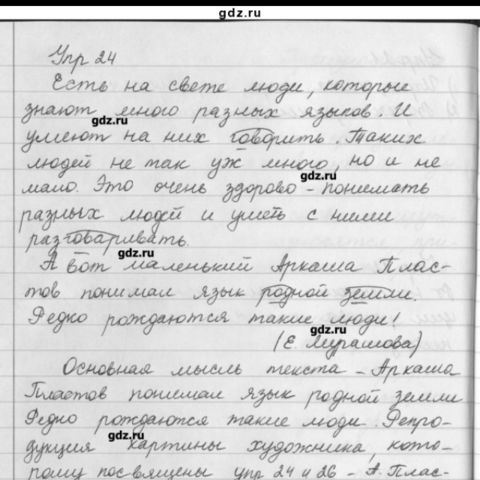 gdz.ru
Упр 24
Есть на свете люди, которые
знают много разных языков. И
gdz.ru
умеют на них говорить. Таких
людей не так уж много, но и не
gdz.ru
мало. Это очень здорово - понимать
разных людей и уметь с ними
разговаривать.
gdz.ru
А вот маленький Аркаша Плас-
тов понимал язык родной земли.
Редко рождаются такие люди!
gdz.ru
(Е. Мурашова)
Основная мысль текста - Аркаша
Пластов понимал язык родной земли
Редко рождаются такие люди. Репро-
gdz.ru
дукция картины художника, кото-
рому посвящены упр 24 и 26 - А. Плас-